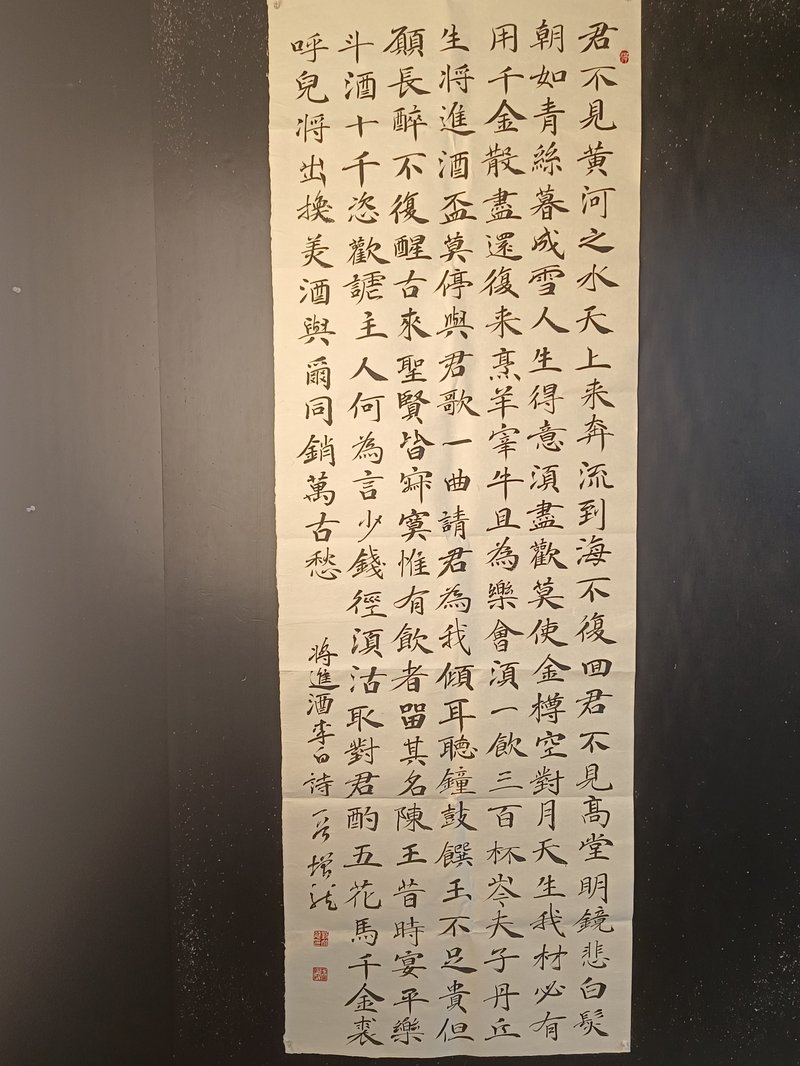 君不見黄河之水天上来奔流到海不復囬君不見高堂明鏡悲白髮
朝如青絲暮成雪人生得意須盡歡莫使金樽空對月天生我材必有
用千金散盡還復来烹羊宰牛且為樂會須一飲三百杯岑夫子丹丘
生將進酒盃莫停與君歌一曲請君為我傾耳聽鐘鼓饌玉不足貴但
願長醉不復醒古來聖賢皆寂寞惟有飲者留其名陳王昔時宴平樂
斗酒十千恣歡謔主人何為言少錢徑須沽取對君酌五花馬千金裘
呼兒將出換美酒與爾同銷萬古愁
將進酒李白詩